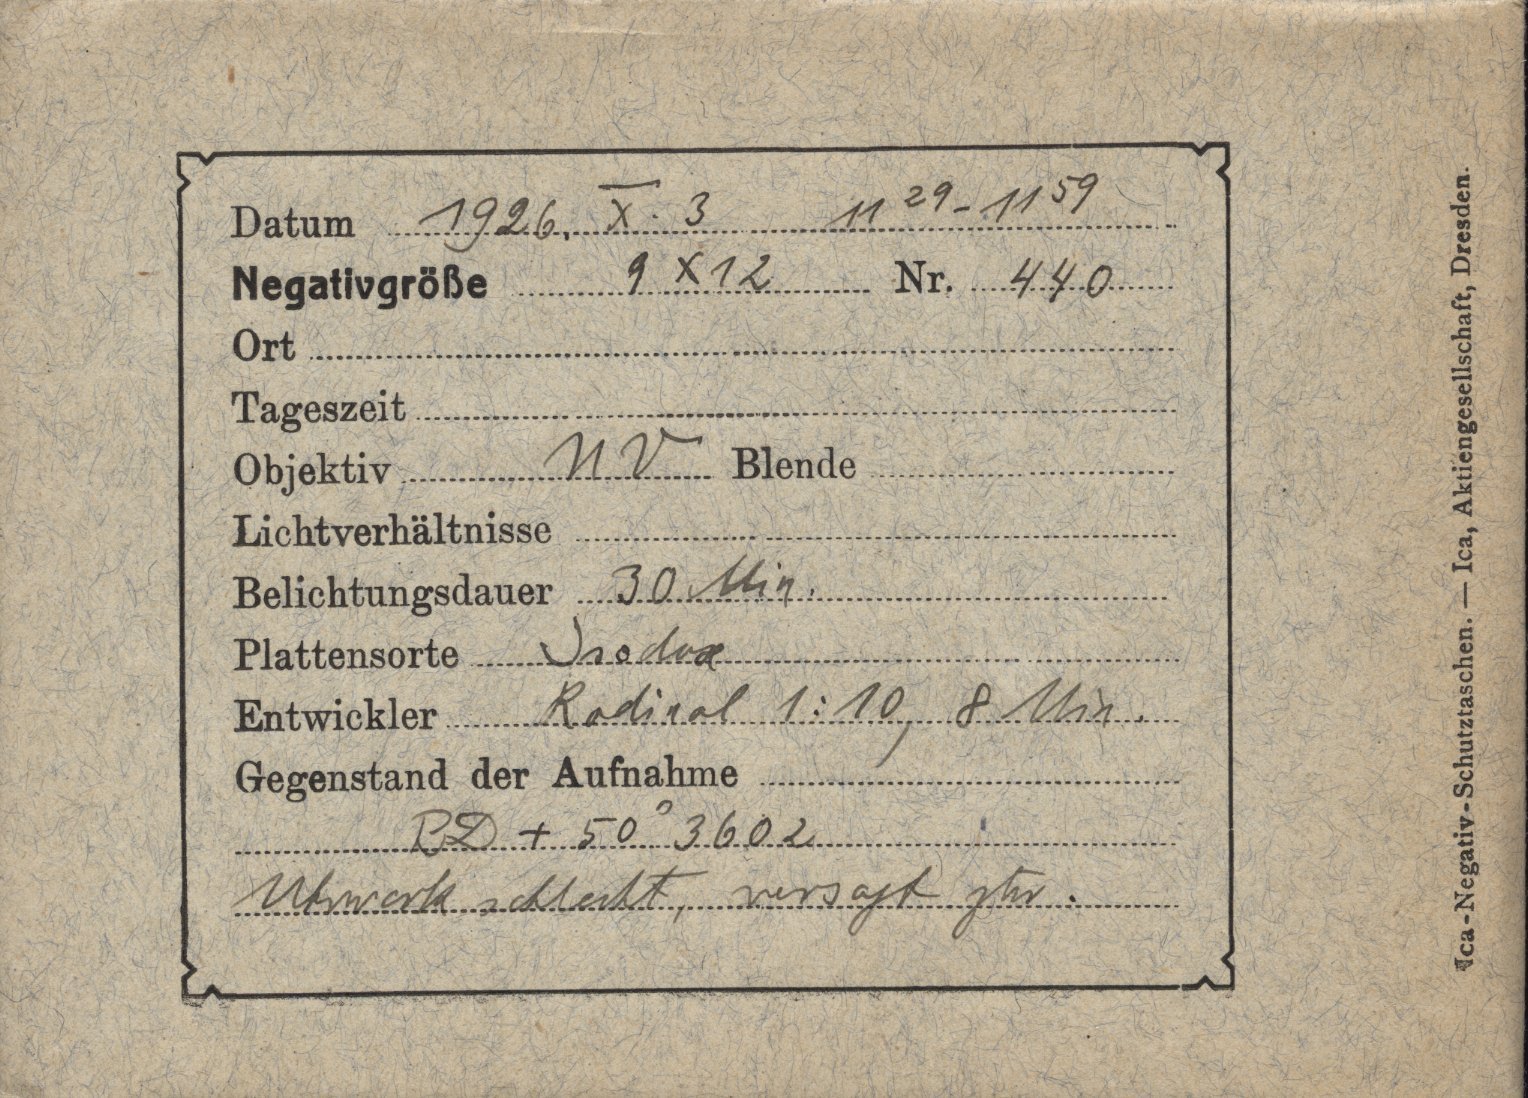 Datum 1926. X. 3 11 29 - 11 59
Negativgröße 9 X 12 Nr. 440
Ort
Tageszeit
Objektiv UV Blende
Lichtverhältnisse
Belichtungsdauer 30 Min.
Plattensorte Isodux
Entwickler Rodinal 1:10, 8 Min.
Gegenstand der Aufnahme
BD + 50° 3602
Uhrwerk schlecht, versagt
Ica-Negativ-Schutztaschen. — Ica, Aktiengesellschaft, Dresden.